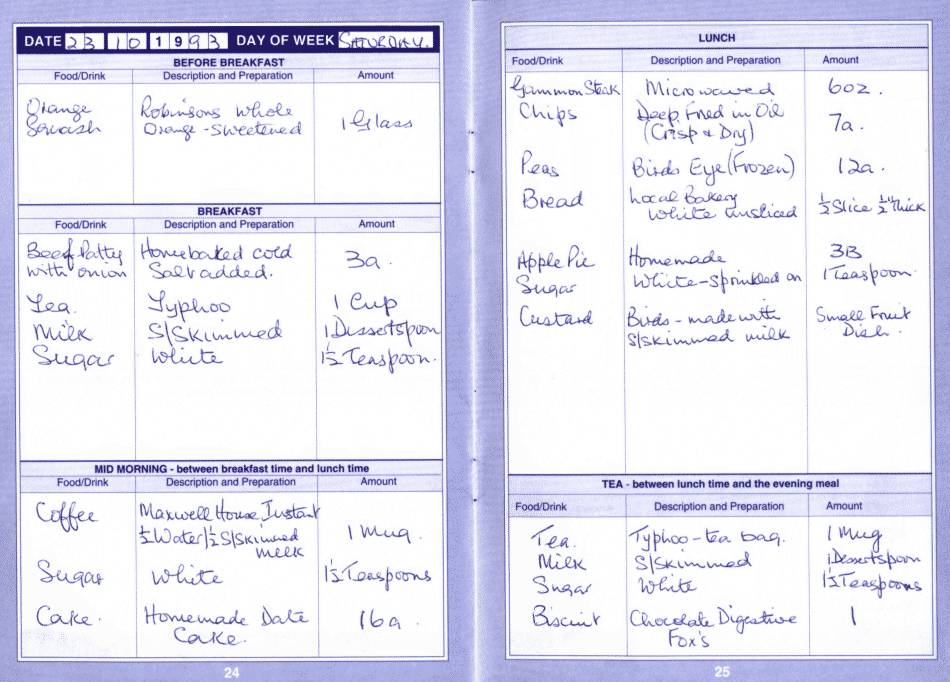 DATE 23 10 1993 DAY OF WEEK SATURDAY.
BEFORE BREAKFAST
Food/Drink Description and Preparation Amount
Orange Robinsons Whole
Squash Orange - Sweetened 1 Glass
BREAKFAST
Food/Drink Description and Preparation Amount
Beef Patty Homebaked cold 3a.
with onion Salt added.
Tea. Typhoo 1 Cup
Milk S/Skimmed 1 Dessertspoon
Sugar White 1½ Teaspoon.
MID MORNING - between breakfast time and lunch time
Food/Drink Description and Preparation Amount
Coffee Maxwell House Instant
½ Water/½ S/Skimmed 1 Mug.
Milk
Sugar White 1½ Teaspoons
Cake. Homemade Date 16a.
Cake.
24
LUNCH
Food/Drink Description and Preparation Amount
Gammon Steak Microwaved 6oz.
Chips Deep Fried in Oil 7a.
(Crisp & Dry)
Peas Birds Eye (Frozen) 12a.
Bread Local Bakery ½ Slice ½" Thick
White unsliced
Apple Pie Homemade 3B
Sugar White - Sprinkled on 1 Teaspoon.
Custard Birds - made with Small Fruit
S/Skimmed milk Dish.
TEA - between lunch time and the evening meal
Food/Drink Description and Preparation Amount
Tea. Typhoo - tea bag. 1 Mug
Milk S/Skimmed 1 Dessertspoon
Sugar White 1½ Teaspoons
Biscuit Chocolate Digestive 1
Fox's
25